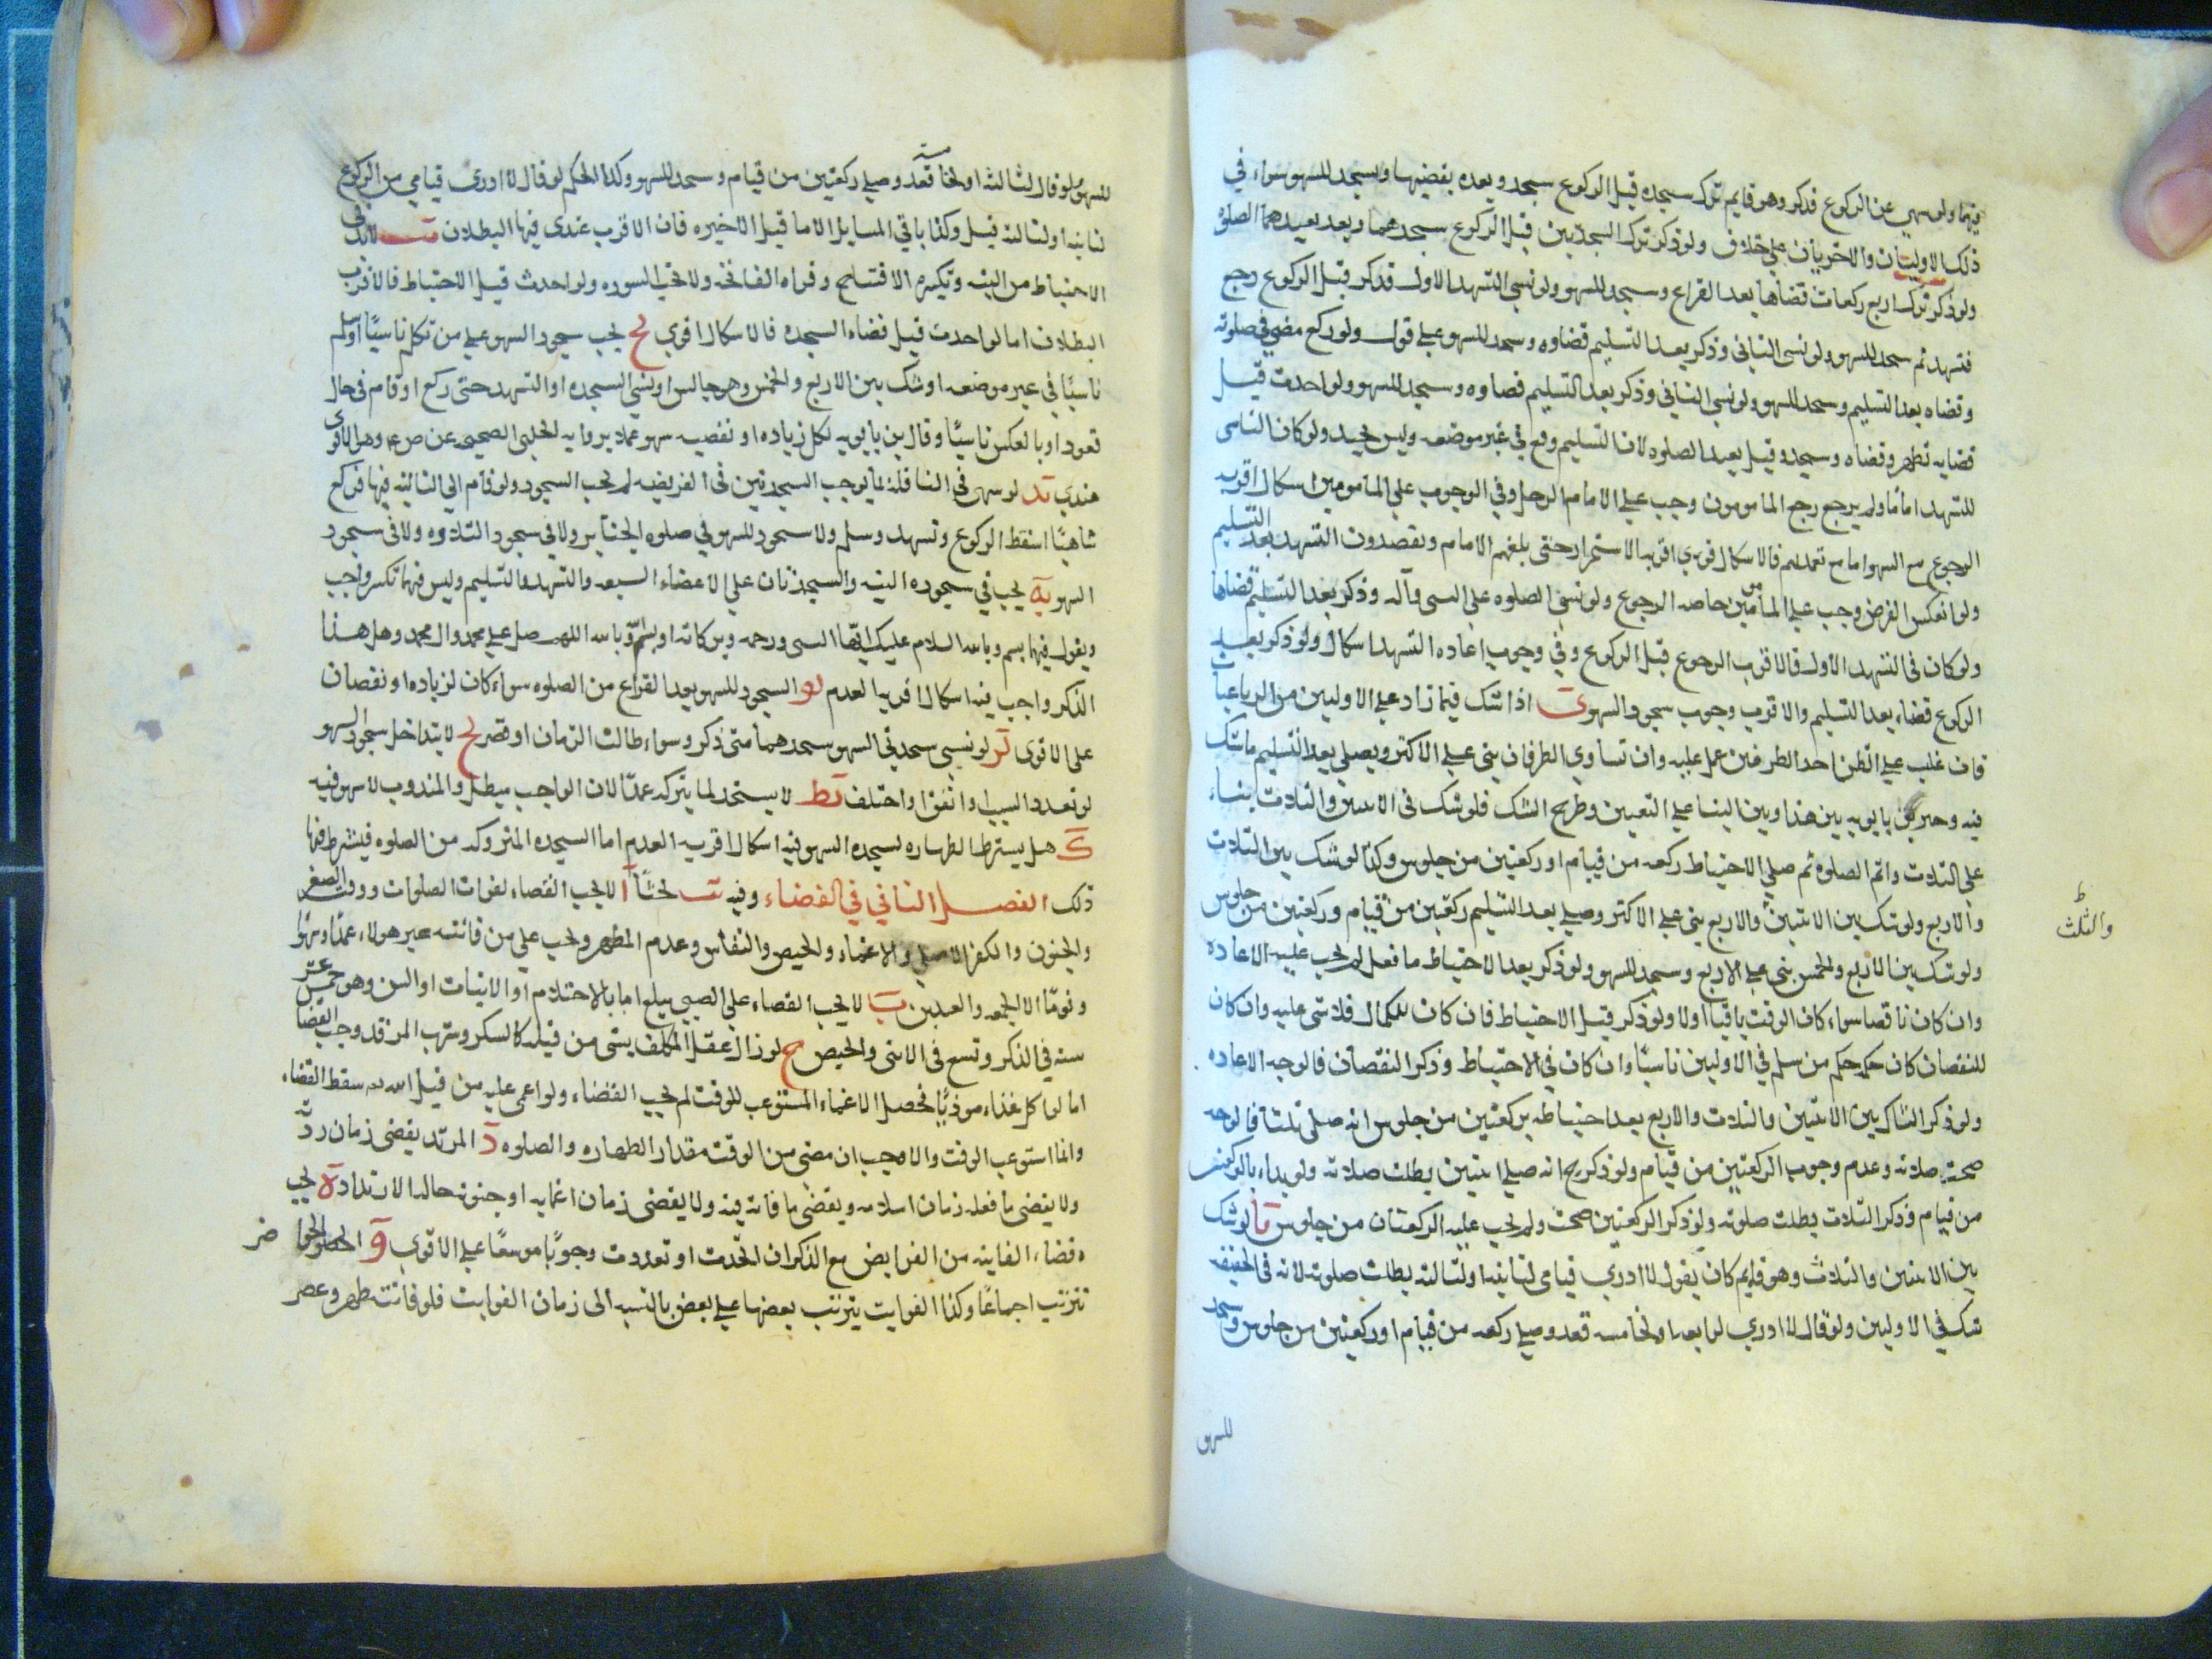 فيهما ولو سهي عن الركوع فذكر وهو قايم ترك سجده قبل الركوع سجد ويعده يقضيها ويسجد للسهو سواء في
ذلك الاوليتان والاخريان على خلاف ولو ذكر ترك السجدتين قبل الركوع سجدهما وبعد يعيدهما الصلوة
ولو ذكر ترك اربع ركعات قضاها بعد الفراع وسجد للسهو ولو نسي التشهد الاول فذكر قبل الركوع رجع
فتشهد ثم سجد للسهو ولو نسي الثاني وذكر بعد التسليم قضاوه وسجد للسهو على قول ولو ركع مضي في صلوته
وقضاه بعد التسليم وسجد للسهو ولو نسي الثاني وذكر بعد التسليم قضاوه وسجد للسهو ولو احدث قبل
قضايه تطهر وقضاه وسجد وقيل يعيد الصلوه لان التسليم وقع في غير موضعه وليس بجيد ولو كان الناسي
للتشهد اماما ولم يرجع رجع المامومون وجب على الامام الرجل وفي الوجوب على المامومين اشكال اقربه
الرجوع مع السهو اما مع تعمدهم فالاشكال قوي اقربه الاستمرار حتى يلغهم الامام ويقصدون التشهد بعد التسليم
ولو انعكس الفرض وجب على المامومين خاصه الرجوع ولو نسي الصلوه على النبي وآله وذكر بعد التسليم قضاها
ولو كان في التشهد الاول فالاقرب الرجوع قبل الركوع وفي وجوب اعاده التشهد اشكال ولو ذكر بعد
الركوع قضاء بعد التسليم والاقرب وجوب سجود السهو ى اذا شك فيما زاد على الاوليين من الرباعيات
فان غلب على الظن احد الطرفين عمل عليه وان تساوي الطرفان بني على الاكثر ويصلي بعد التسليم ما شك
فيه وخير بن بابويه بين هذا وبين البناء على التعيين وطرح الشك فلو شك في الاثنين والثلاث بناء
على الثلاث واتم الصلوة ثم صلي الاحتياط ركعه من قيام او ركعتين من جلوس وكذا لو شك بين الثلاث
والاربع ولو شك بين الاثنين والاربع بني على الاكثر وصلى بعد التسليم ركعتين من قيام وركعتين من جلوس
والثلث
ولو شك بين الاربع والخمس بني على الاربع وسجد للسهو ولو ذكر بعد الاحتياط ما فعل لم يجب عليه الاعاده
وان كان ناقصا سواء كان الوقت باقيا اولا ولو ذكر قبل الاحتياط فان كان للكمال فلا شي عليه وان كان
للنقصان كان حكمه حكم من سلم في الاوليين ناسيا وان كان في الاحتياط وذكر النقصان فالوجه الاعاده
ولو ذكر الشاك بين الاثنين والثلاث والاربع بعد احتياطه بركعتين من جلوس انه صلى ثلثا فالوجه
صحة صلاته وعدم وجوب الركعتين من قيام ولو ذكر ح انه صلى اثنين بطلت صلاته ولو بداء بالركعتين
من قيام وذكر الثلاث بطلت صلوته ولو ذكر الركعتين صحت ولم يجب عليه الركعتان من جلوس يا لو شك
بين الاثنين والثلاث وهو قايم كان يقول لا ادري قيامي لثانيه او لثالثه بطلت صلوته لانه في الحقيقه
شك في الاوليين ولو قال لا ادري لرابعه او لخامسه قعد وصلى ركعه من قيام او ركعتين من جلوس وسجد
للسهو
للسهو ولو قال لثالثه او لخامسة قعد وصلى ركعتين من قيام وسجد للسهو وكذا الحكم لو قال لا ادري قيامي من الركوع
لثانيه او لثالثه قيل وكذا باقي المسايل الاما قبل الاخيره فان الاقرب عندي فيها البطلان يب لابد في
الاحتياط من النيه وتكبيره الافتتاح وقراه الفاتحه ولا تجب السوره ولو احدث قبل الاحتياط فالاقرب
البطلان اما لو احدث قبل قضاء السجده فالاشكال اقوي يح يجب سجود السهو على من تكلم ناسيا او سلم
ناسيا في غير موضعه او شك بين الاربع والخمس وهو جالس او نسي السجده او التشهد حتى ركع او قام في حال
قعود او بالعكس ناسيا وقال بن بابويه لكل زياده او نقصيه سهو عملا برواية الحلبي الصحيحه عن ص ع وهو الاقوى
عندي يد لو سهى في النافله بما يوجب السجدتين في الفريضه لم يجب السجود ولو قام الى الثالثه فيها فركع
ساهيا اسقط الركوع وتشهد وسلم ولا سجود للسهو في صلوه الجنايز ولا في سجود التلاوه ولا في سجود
السهو يه يجب في سجوده النيه والسجدتان على الاعضاء السبعه والتشهد والتسليم وليس فيهما تكبير واجب
ويقول فيهما بسم وبالله السلام عليك ايها النبي ورحمه وبركاته او بسم وبالله اللهم صل على محمد وال محمد وهل هذا
الذكر واجب فيه اشكال اقربه العدم يو السجود للسهو بعد الفراع من الصلوه سواء كان لزياده او نقصان
على الاقوى يز لو نسي سجدتي السهو سجدهما متى ذكر وسواء طالت الزمان او قصر يح لا يتداخل سجود السهو
لو تعدد السبب وان اتفق او اختلف يط لا يسجد لما يتركه عمدا لان الواجب يبطل والمندوب لا سهو فيه
ك هل يشترط الطهاره لسجده السهو فيه اشكال اقربه العدم اما السجده المتروكه من الصلوه فيشترط فيها
ذلك الفصل الثاني في القضاء وفيه بحثا ا لا يجب القضاء لفوات الصلوات ووقت الصغر
والجنون والكفر الاصلي والاغماء والحيض والنفاس وعدم المطهر ويجب على من فاتته غير هولاء عمدا وسهوا
ونوما الا الجمعه والعيدين ب لا يجب القضاء على الصبي يبلغ اما بالاحتلام او الانبات او السن وهو خمس عشر
سنه في الذكر وتسع في الانثى والحيض ح لو زال عقل المكلف بشي من قبله كالسكر وشرب المرقد وجب القضا
اما لو اكل غذاء موذيا فحصل الاغماء المستوعب للوقت لم يجب القضاء ولو اغمى عليه من قبل الله سقط القضاء
وانما استوعب الوقت والاوجب ان مضى من الوقت مقدار الطهاره والصلوه د المرتد يقضى زمان رد
ولا يقضي ما فعله زمان اسلامه ويقضى ما فاته فيه ولا يقضى زمان اغمايه او جنونه حاله الارتداد ه يجب
ه قضاء الفايته من الفرايض مع الذكر ان اتحدت او تعددت وجوبا موسعا على الاقوى و الحواضر
تترتب اجماعا وكذا الفوايت يترتب بعضها على بعض بالنسبه الى زمان الفوايت فلو فاتته ظهر وعصر